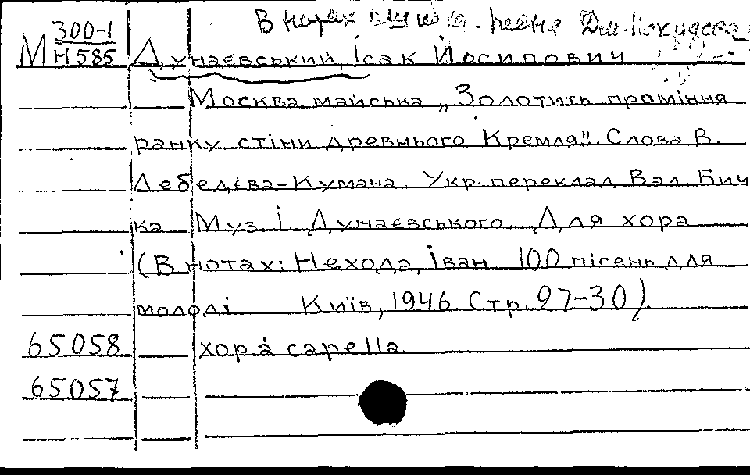 В нотах
М 300-1
Н585 Дунаєвський, Ісак Йосипович
Москва майська „Золотить проміння
ранку стіни древнього Кремля". Слова В.
Лебедєва-Кумача. Укр. переклад Вал. Бич
ка Муз. І. Дунаєвського. Для хора
(В нотах: Нехода, Іван 100 пісень для
молоді Київ, 1946 Стр. 27-30).
65058 хор а capella
65057